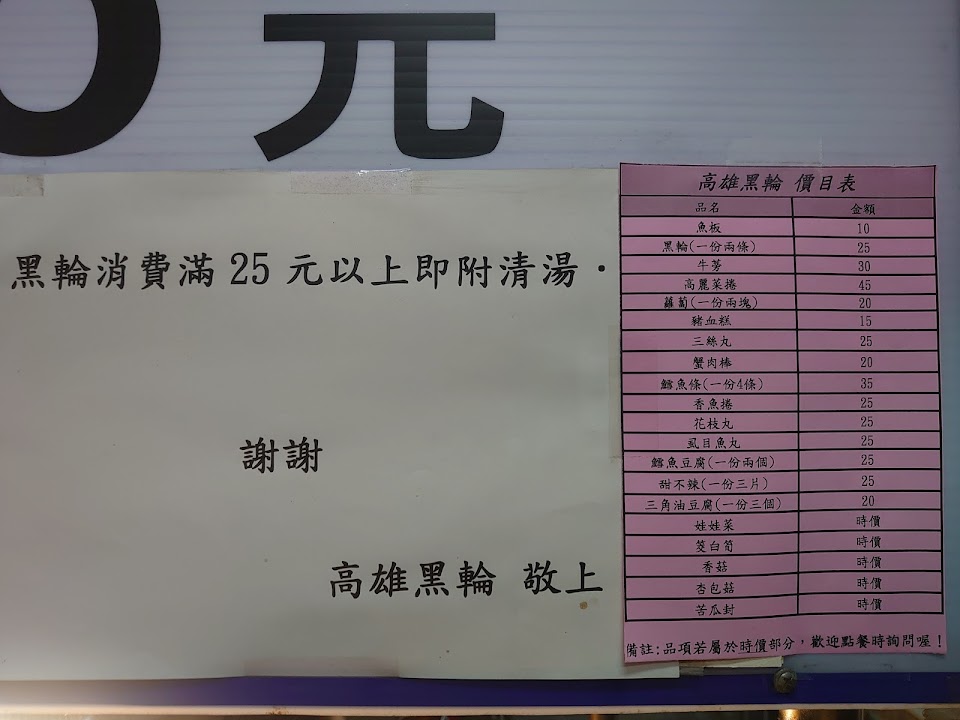 0元
黑輪消費滿25元以上即附清湯．
謝謝
高雄黑輪 敬上
高雄黑輪 價目表
品名 金額
魚板 10
黑輪(一份兩條) 25
牛蒡 30
高麗菜捲 45
蘿蔔(一份兩塊) 20
豬血糕 15
三絲丸 25
蟹肉棒 20
鱈魚條(一份4條) 35
香魚捲 25
花枝丸 25
虱目魚丸 25
鱈魚豆腐(一份兩個) 25
甜不辣(一份三片) 25
三角油豆腐(一份三個) 20
娃娃菜 時價
筊白筍 時價
香菇 時價
杏包菇 時價
苦瓜封 時價
備註:品項若屬於時價部分，歡迎點餐時詢問喔！